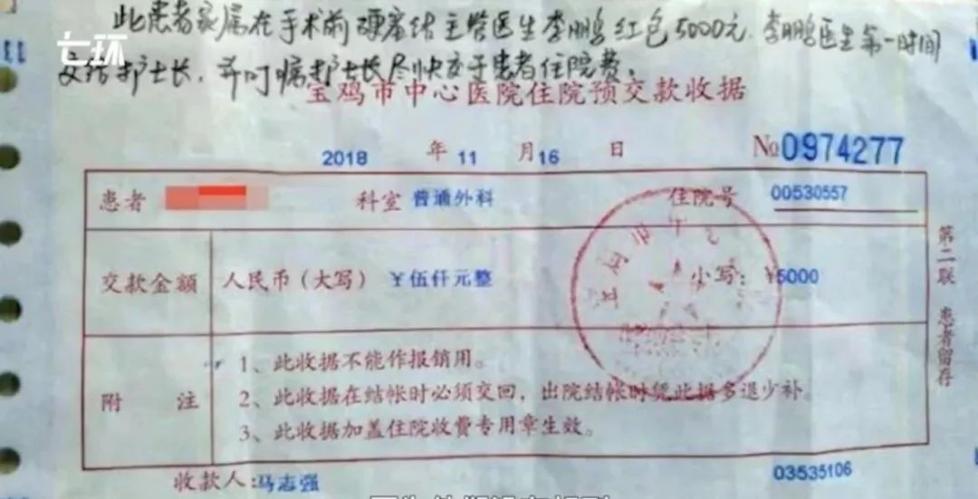 七环
此患者家属在手术前硬塞给主管医生李鹏鹏红包5000元，李鹏鹏医生第一时间
交给护士长，并叮嘱护士长尽快交于患者住院费。
宝鸡市中心医院住院预交款收据
2018 年 11 月 16 日 No 0974277
患者 科室 普通外科 住院号 00530557
交款金额 人民币（大写） ￥伍仟元整 小写：￥5000
附 注
1、此收据不能作报销用。
2、此收据在结帐时必须交回，出院结帐时凭此据多退少补。
3、此收据加盖住院收费专用章生效。
第二联 患者留存
收款人：马志强 03535106